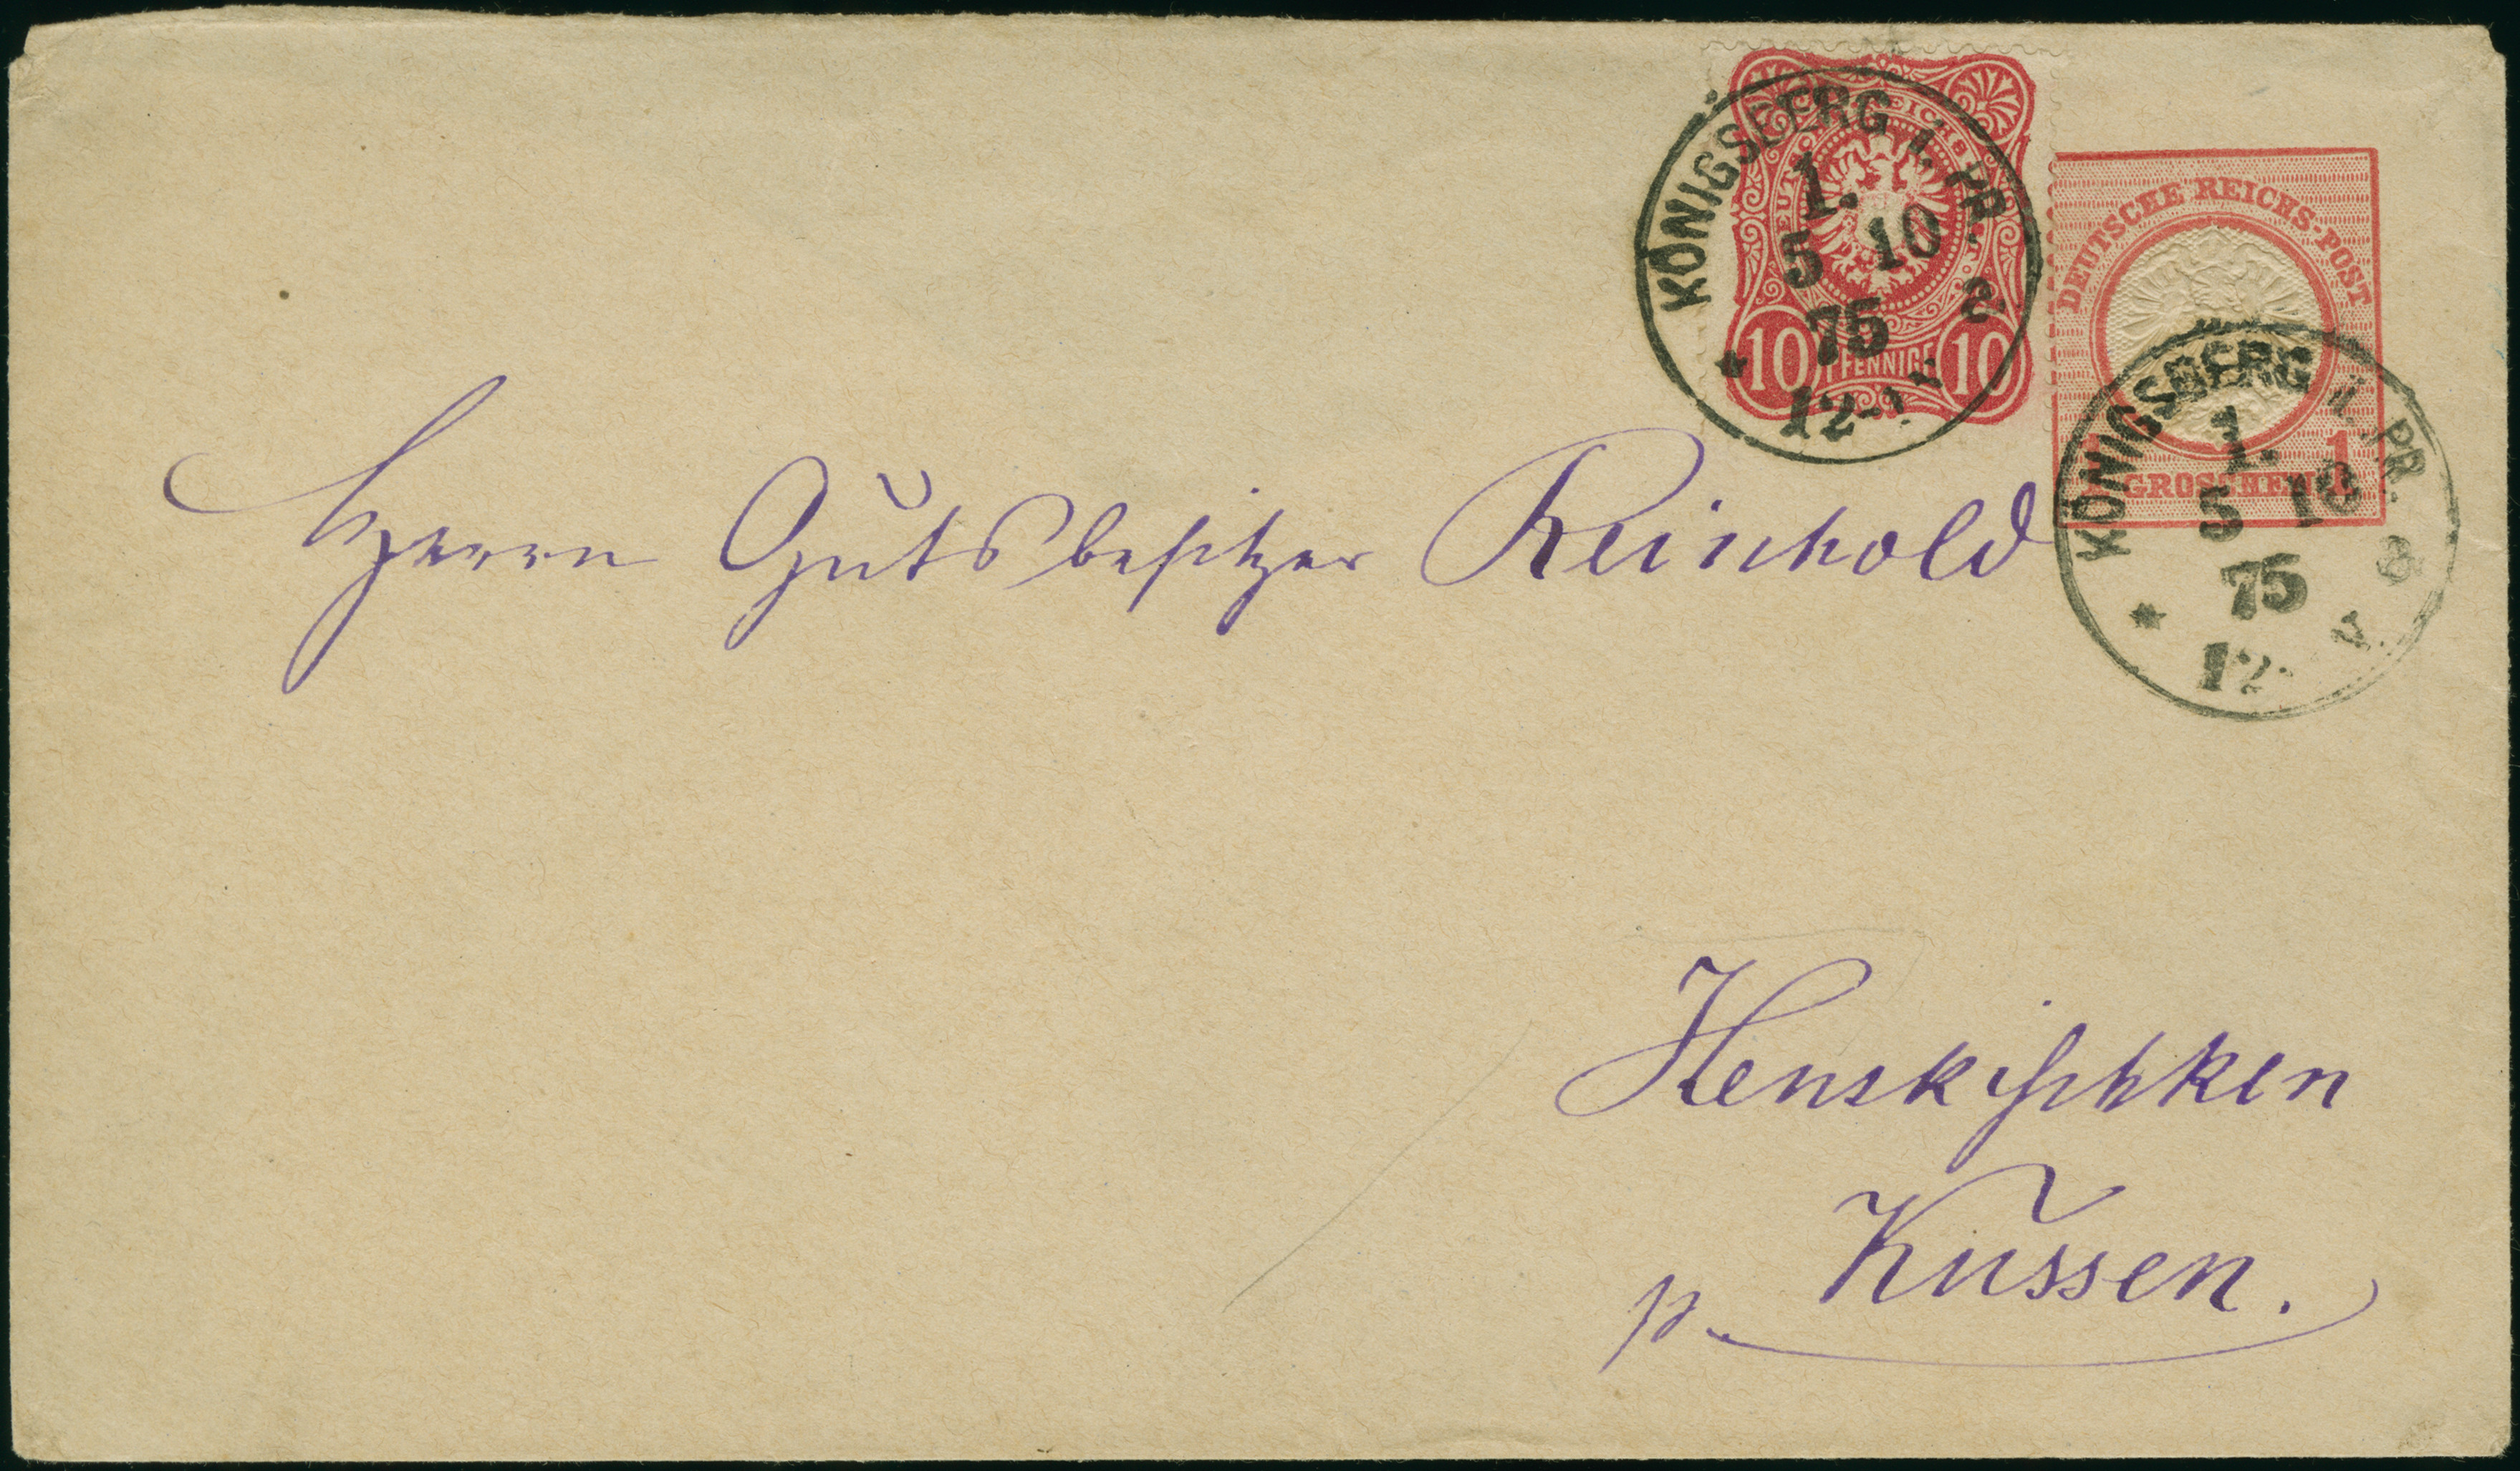 DEUTSCHE REICHS-POST
10 PFENNIGE 10
KÖNIGSBERG I. PR.
1.
5 10
75 a.
* 12-1
DEUTSCHE REICHS-POST
1 GROSCHEN 1
KÖNIGSBERG I. PR.
1.
5 10
75 a.
* 12- V.
Herrn Gutsbesitzer Reinhold
Henskischken
p. Kussen.